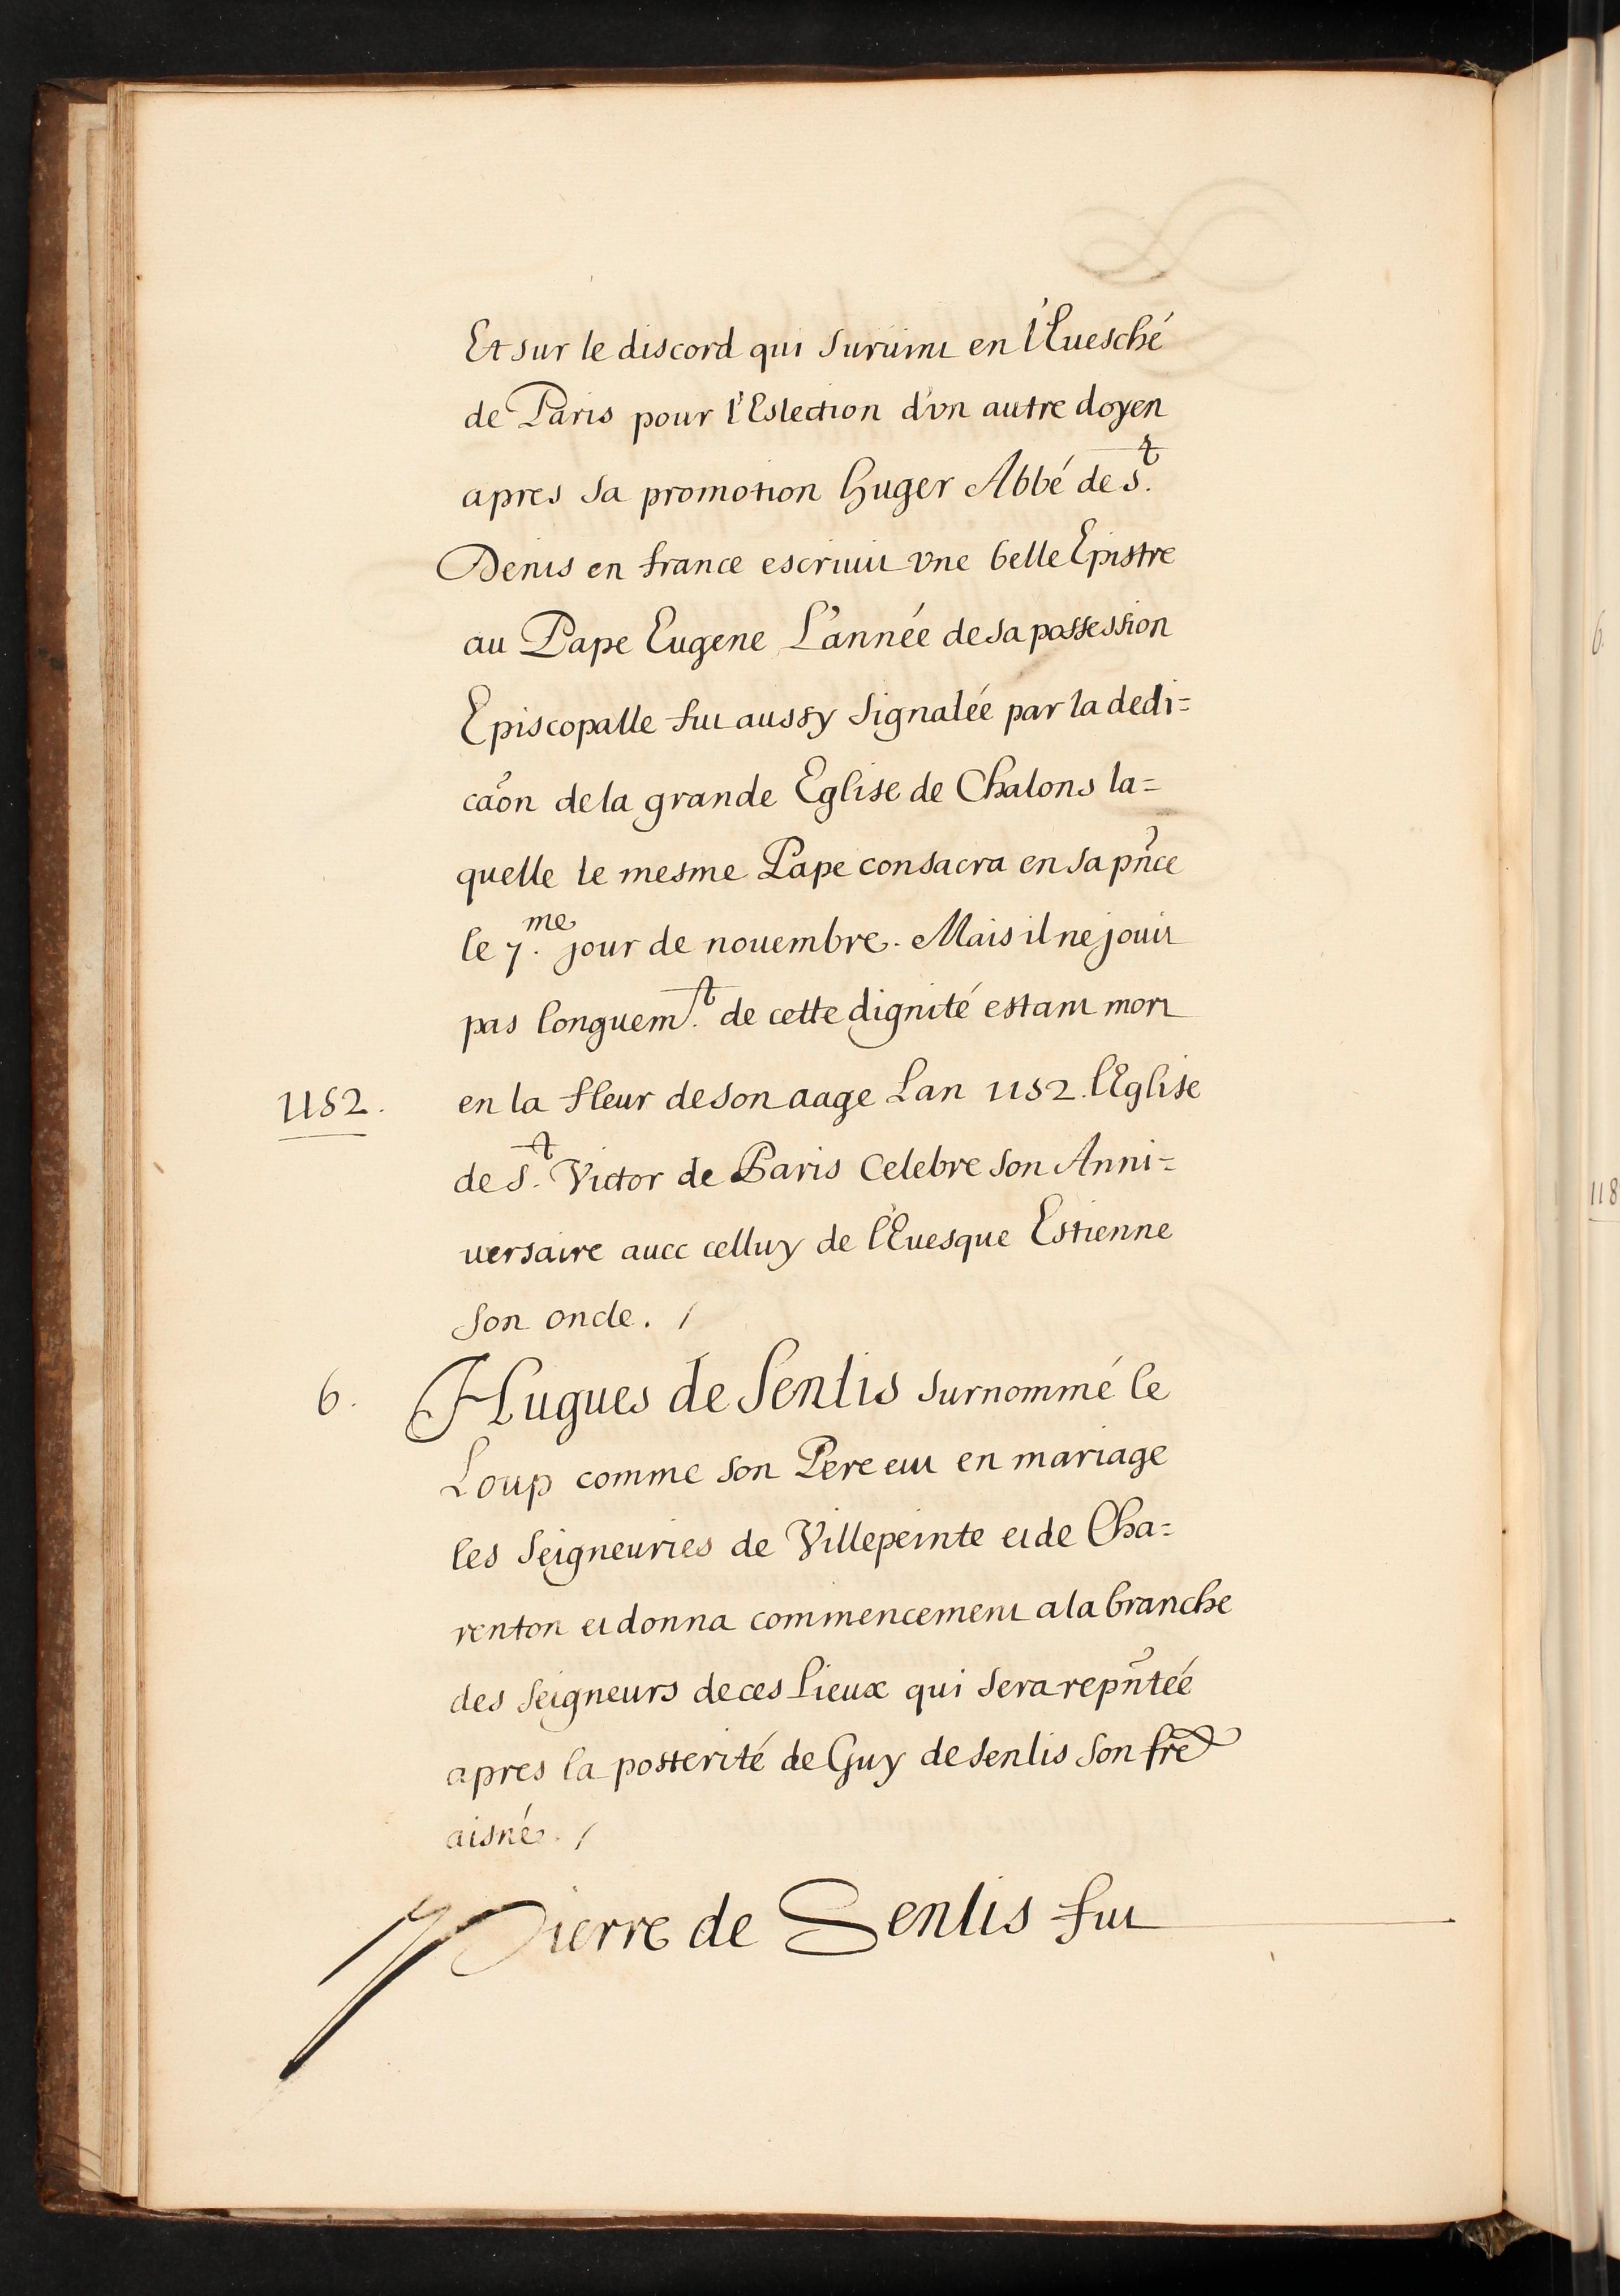 Et sur le discord qui suruint en l'Euesché
de Paris pour l'Eslection d'vn autre doyen
apres sa promotion huger Abbé de S.t
Denis en france escriuit vne belle Epistre
au Pape Eugene L'année de sa possession
Episcopalle fut aussy signalée par la dedi=
cãon de la grande Eglise de Chalons la=
quelle le mesme Pape consacra en sa pñce
le 7.me jour de nouembre. Mais il ne jouit
pas longuem.t de cette dignité estant mort
1152. en la fleur de son aage Lan 1152. l'Eglise
de S.t Victor de Paris Celebre son Anni=
uersaire auec celluy de l'Euesque Estienne
son oncle. /
6. Hugues de Senlis surnommé le
Loup comme son Pere eut en mariage
les Seigneuries de Villepeinte et de Cha=
renton et donna commencement a la branche
des Seigneurs de ces Lieux qui sera repñtée
apres la posterité de Guy de Senlis son fre
aisné. /
Pierre de Senlis fut
6.
118